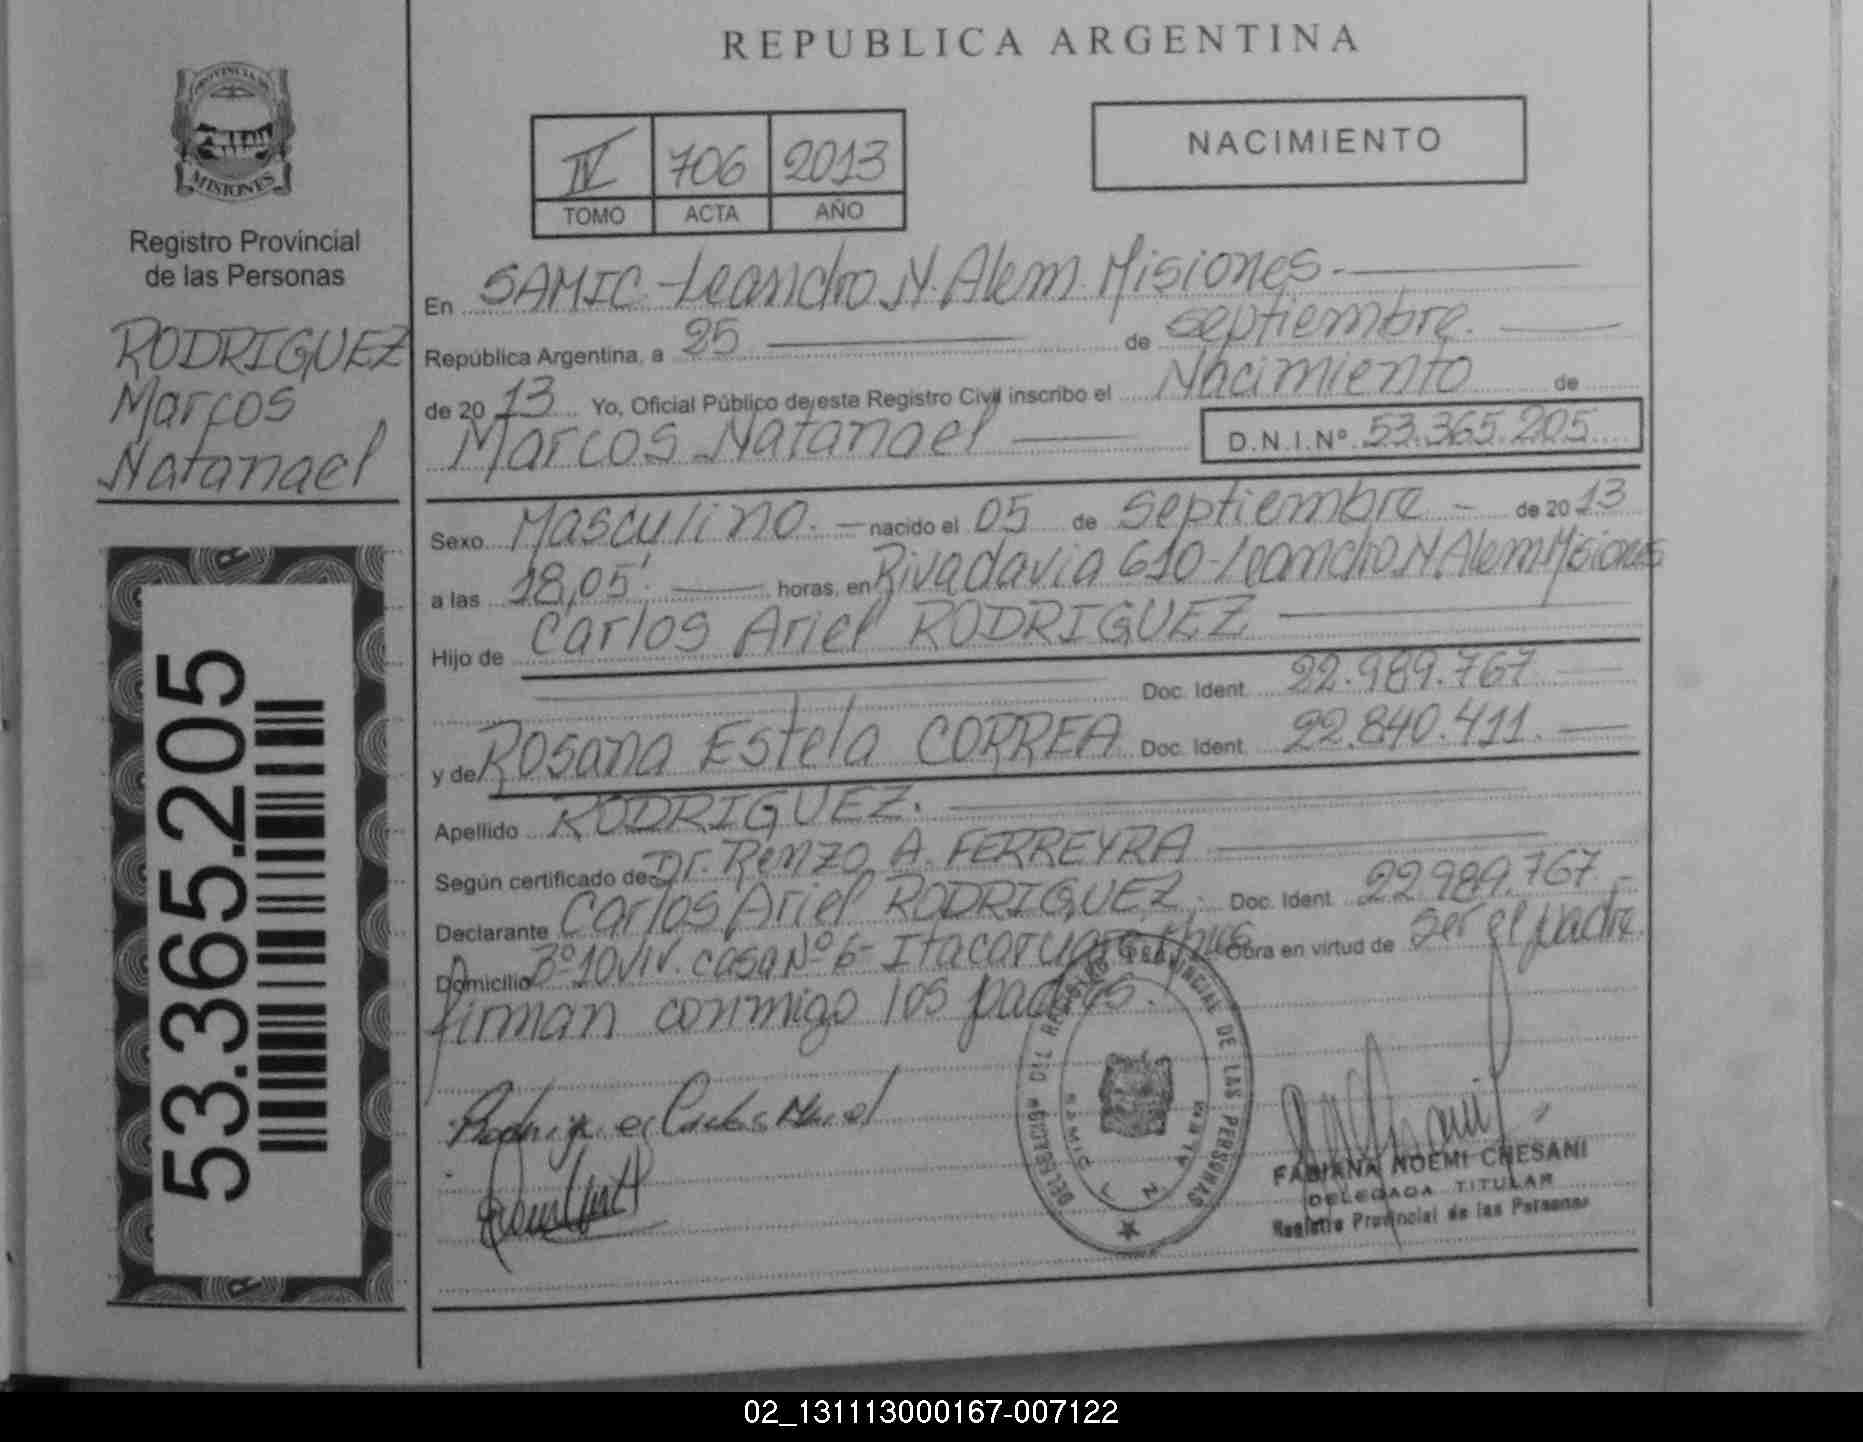 REPUBLICA ARGENTINA
PROVINCIA DE
MISIONES
Registro Provincial
de las Personas
RODRIGUEZ
Marcos
Natanael
53.365.205
IV 706 2013
TOMO ACTA AÑO
NACIMIENTO
En SAMIC - Leandro N. Alem. Misiones.
República Argentina, a 25 de septiembre.
de 2013 Yo, Oficial Público de este Registro Civil inscribo el Nacimiento de
Marcos Natanael D.N.I.Nº 53.365.205
Sexo Masculino. nacido el 05 de septiembre - de 2013
a las 18,05'. horas, en Rivadavia 610 - Leandro N. Alem Misiones
Hijo de Carlos Ariel RODRIGUEZ
Doc. Ident. 22.989.767
y de Rosana Estela CORREA Doc. Ident. 22.840.411.
Apellido RODRIGUEZ.
Según certificado de Dr. Renzo A. FERREYRA
Declarante Carlos Ariel RODRIGUEZ, Doc. Ident. 22989.767
Domicilio Bº 10 viv. casa Nº 6 - Itacaruare Obra en virtud de ser el padre.
firman conmigo los padres.
DELEGACION DEL REGISTRO PROVINCIAL DE LAS PERSONAS
SAMIC L N ALEM
FABIANA NOEMI CHESANI
DELEGADA TITULAR
Registro Provincial de las Personas
02_131113000167-007122